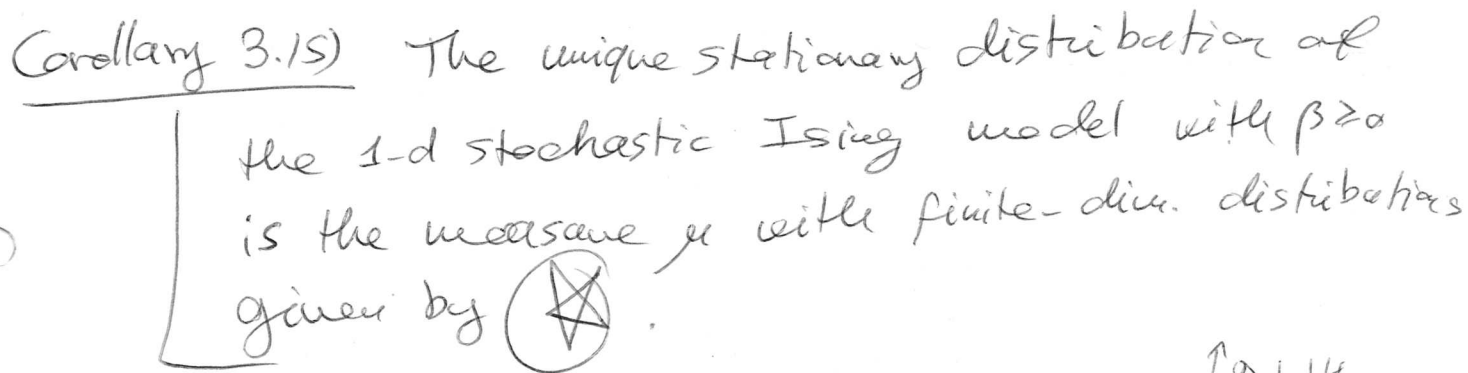 Corollary 3.15) The unique stationary distribution of
the 1-d stochastic Ising model with β≥0
is the measure μ with finite-dim. distributions
given by ☆.